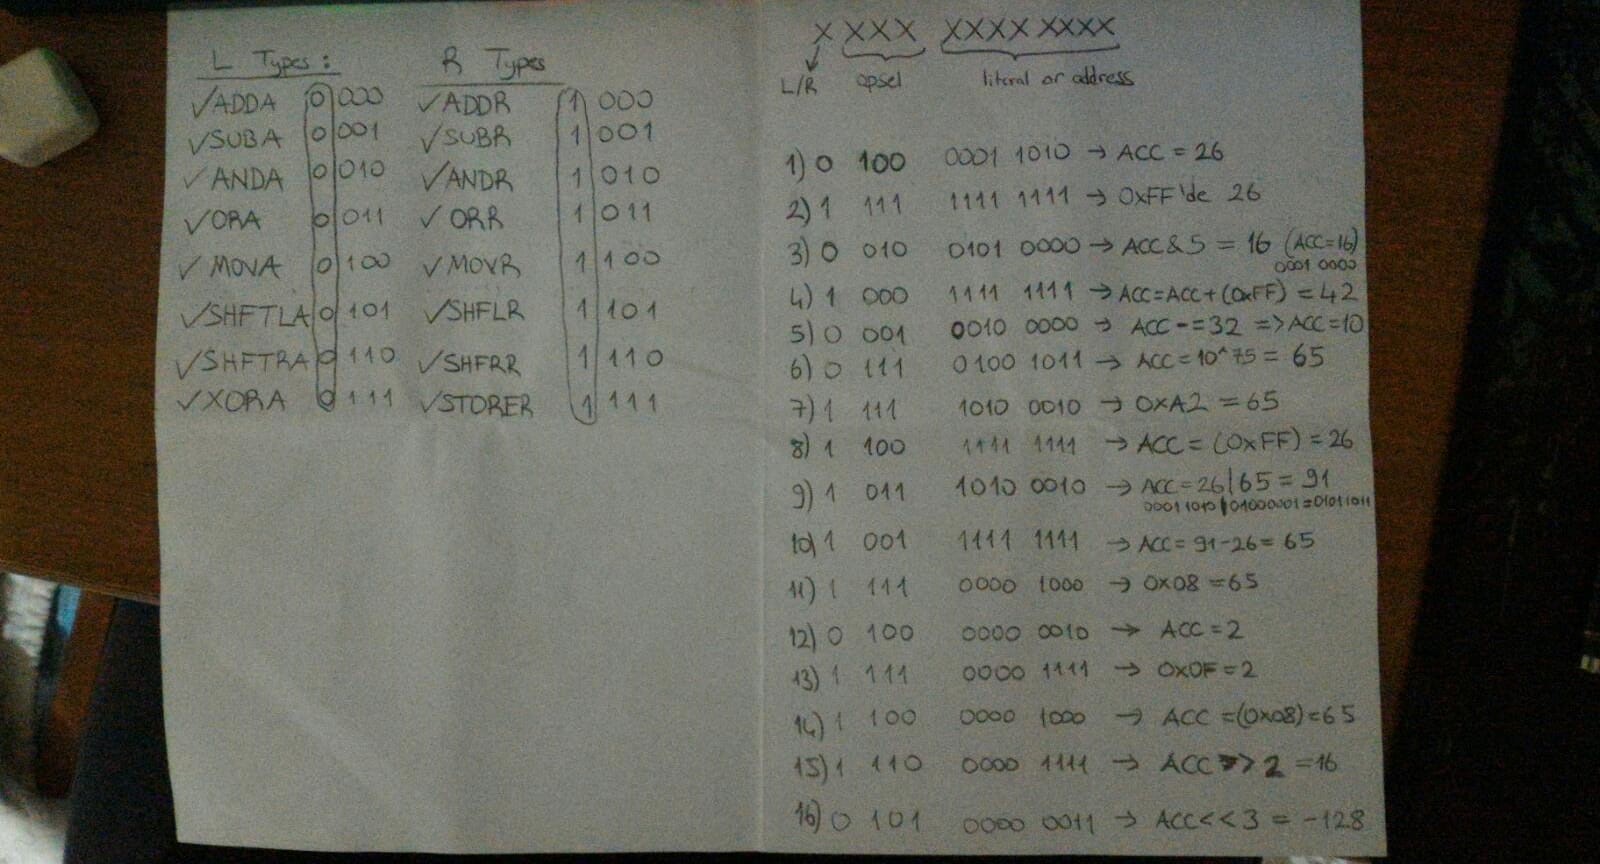 L Types:
ADDA 0 000
SUBA 0 001
ANDA 0 010
ORA 0 011
MOVA 0 100
SHFTLA 0 101
SHFTRA 0 110
XORA 0 111
R Types
ADDR 1 000
SUBR 1 001
ANDR 1 010
ORR 1 011
MOVR 1 100
SHFLR 1 101
SHFRR 1 110
STORER 1 111
X XXX XXXX XXXX
L/R opsel literal or address
1) 0 100 0001 1010 → ACC = 26
2) 1 111 1111 1111 → 0xFF'de 26
3) 0 010 0101 0000 → ACC & 5 = 16 (ACC=16)
0001 0000
4) 1 000 1111 1111 → ACC=ACC+(0xFF) = 42
5) 0 001 0010 0000 → ACC -= 32 => ACC=10
6) 0 111 0100 1011 → ACC=10^75 = 65
7) 1 111 1010 0010 → 0xA2 = 65
8) 1 100 1111 1111 → ACC = (0xFF) = 26
9) 1 011 1010 0010 → ACC=26|65 = 91
00011010|01000001=01011011
10) 1 001 1111 1111 → ACC= 91-26= 65
11) 1 111 0000 1000 → 0x08 =65
12) 0 100 0000 0010 → ACC=2
13) 1 111 0000 1111 → 0x0F=2
14) 1 100 0000 1000 → ACC=(0x08)=65
15) 1 110 0000 1111 → ACC >> 2 =16
16) 0 101 0000 0011 → ACC<<3 = -128